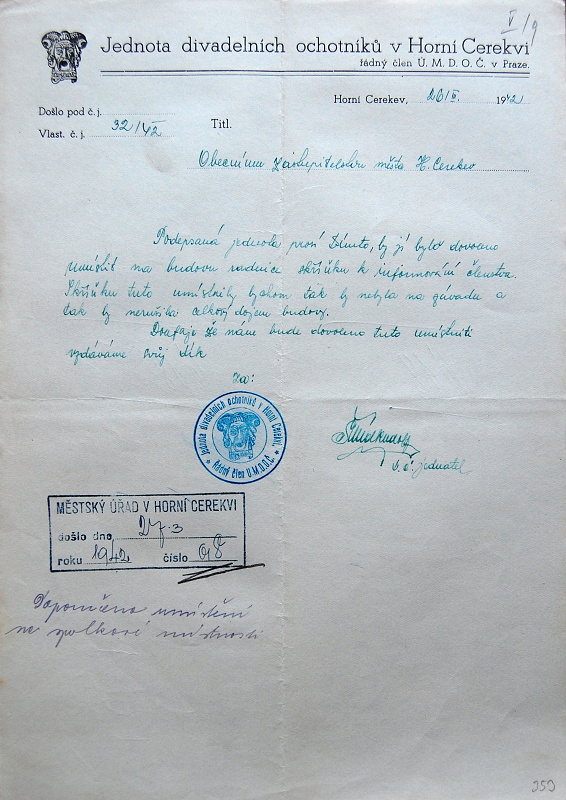 V/9
Jednota divadelních ochotníků v Horní Cerekvi
řádný člen Ú. M. D. O. Č. v Praze.
Horní Cerekev, 26/III. 1942
Došlo pod č. j.
Vlast. č. j. 32/42
Titl.
Obecnímu zastupitelstvu města H. Cerekev
Podepsaná jednota prosí by jí bylo dovoleno
umístit na budovu radnice skříňku k informování členstva.
Skříňku tuto umístnily bychom tak by nebyla na závadu a
tak by nerušila celkový dojem budovy.
Doufajíc že nám bude dovoleno tuto umístniti
vzdáváme svůj dík
Za:
Jednota divadelních ochotníků v Horní Cerekvi
Řádný člen Ú.M.D.O.Č.
jednatel
MĚSTSKÝ ÚŘAD V HORNÍ CEREKVI
došlo dne 27.3
roku 1942 číslo 98
Doporučeno umístění
na spolkové místnosti
353